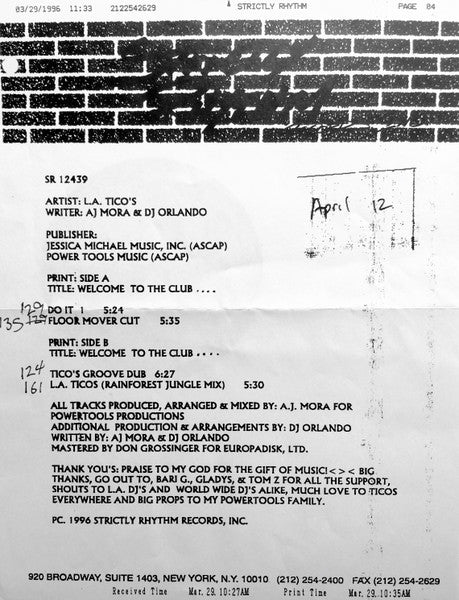 03/29/1996 11:33 2122542629 STRICTLY RHYTHM PAGE 04
Strictly
Rhythm
SR 12439
April 12
ARTIST: L.A. TICO'S
WRITER: AJ MORA & DJ ORLANDO
PUBLISHER:
JESSICA MICHAEL MUSIC, INC. (ASCAP)
POWER TOOLS MUSIC (ASCAP)
PRINT: SIDE A
TITLE: WELCOME TO THE CLUB ....
129 DO IT 1 5:24
135 FLOOR MOVER CUT 5:35
PRINT: SIDE B
TITLE: WELCOME THE CLUB ....
124 TICO'S GROOVE DUB 6:27
161 L.A. TICOS (RAINFOREST JUNGLE MIX) 5:30
ALL TRACKS PRODUCED, ARRANGED & MIXED BY: A.J. MORA FOR
POWERTOOLS PRODUCTIONS
ADDITIONAL PRODUCTION & ARRANGEMENTS BY: DJ ORLANDO
WRITTEN BY: AJ MORA & DJ ORLANDO
MASTERED BY DON GROSSINGER FOR EUROPADISK, LTD.
THANK YOU'S: PRAISE TO MY GOD FOR THE GIFT OF MUSIC! < > < BIG
THANKS, GO OUT TO, BARI G., GLADYS, & TOM Z FOR ALL THE SUPPORT,
SHOUTS TO L.A. DJ'S AND WORLD WIDE DJ'S ALIKE, MUCH LOVE TO TICOS
EVERYWHERE AND BIG PROPS TO MY POWERTOOLS FAMILY.
PC. 1996 STRICTLY RHYTHM RECORDS, INC.
920 BROADWAY, SUITE 1403, NEW YORK, N.Y. 10010 (212) 254-2400 FAX (212) 254-2629
Received Time Mar. 29. 10:27AM Print Time Mar. 29. 10:35AM